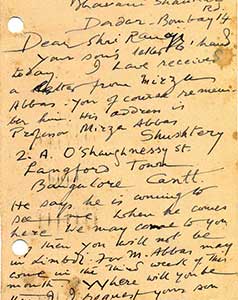 Bhavani Shankar
Rd.
Dadar - Bombay 14
Dear Shri
Your son's letter to hand
today. I have received
a letter from Mirza
Abbas. You of course remem-
ber him. His address is
Professor Mirza Abbas
Shushtery
2. A. O'Shaughnessy St.
Langford Town
Bangalore Cantt.
He says he is coming to
see me. When he comes
here he may come to you
then you will not be
in Limbdi. For M. Abbas may
come in the third week of this
month. Where will you be
request your son